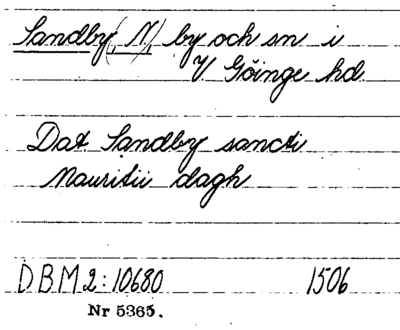 Sandby(, N), by och sn i
V Göinge hd
Dat Sandby sancti
Mauritii dagh
DBM 2:10680 1506
Nr 5365.